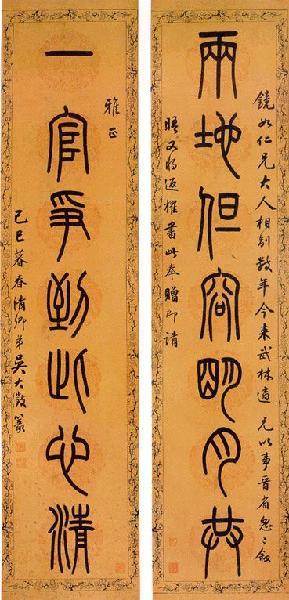 鏡如仁兄大人相別數年今來武林適 兄以事晉省怱怱敘
兩地但容朙月共
晤又將返櫂書此奉贈即請
雅正
一官爭到此心清
己巳暮春清卿弟吳大澂篆